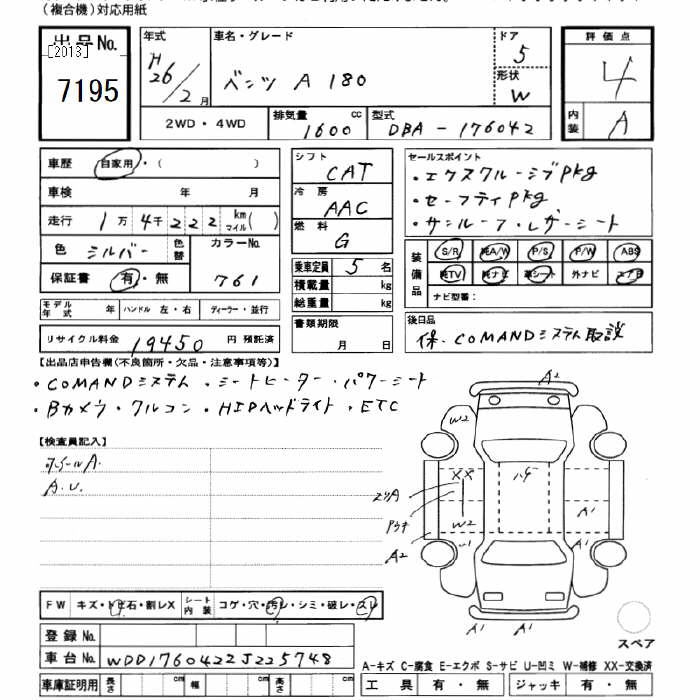 (複合機)対応用紙
出品No.
[2013]
7195
年式 H26/2月
車名・グレード ベンツ A 180
ドア 5
形状 W
評価点 4
内装 A
2WD・4WD
排気量 1600 cc
型式 DBA-176042
車歴 自家用・( )
車検 年 月
走行 1万4千222 km マイル( )
色 シルバー 色替
カラーNo. 761
保証書 有・無
モデル年式 年 ハンドル 左・右 ディーラー・並行
リサイクル料金 19450 円 預託済
シフト CAT
冷房 AAC
燃料 G
乗車定員 5 名
積載量 kg
総重量 kg
書類期限 月 日
セールスポイント
・エクスクルーシブpkg
・セーフティpkg
・サンルーフ・レザーシート
装備品 S/R 純A/W P/S P/W ABS
純TV 純ナビ 革シート 外ナビ エアB
ナビ型番:
後日品
保・COMANDシステム取説
【出品店申告欄(不良箇所・欠品・注意事項等)】
・COMANDシステム・シートヒーター・パワーシート
・Bカメラ・クルコン・HIDヘッドライト・ETC
【検査員記入】
ホイールA.
A.U.
A2
W2
XX
ハゲ
W2
A1
A2
A1
A1
A1
スペア
FW キズ・トビ石・割レX シート内装 コゲ・穴・汚レ・シミ・破レ・スレ
登録No.
車台No. WDD1760422J225748
車庫証明用 長さ cm 幅 cm 高さ cm
A-キズ C-腐食 E-エクボ S-サビ U-凹ミ W-補修 XX-交換済
工具 有・無 ジャッキ 有・無